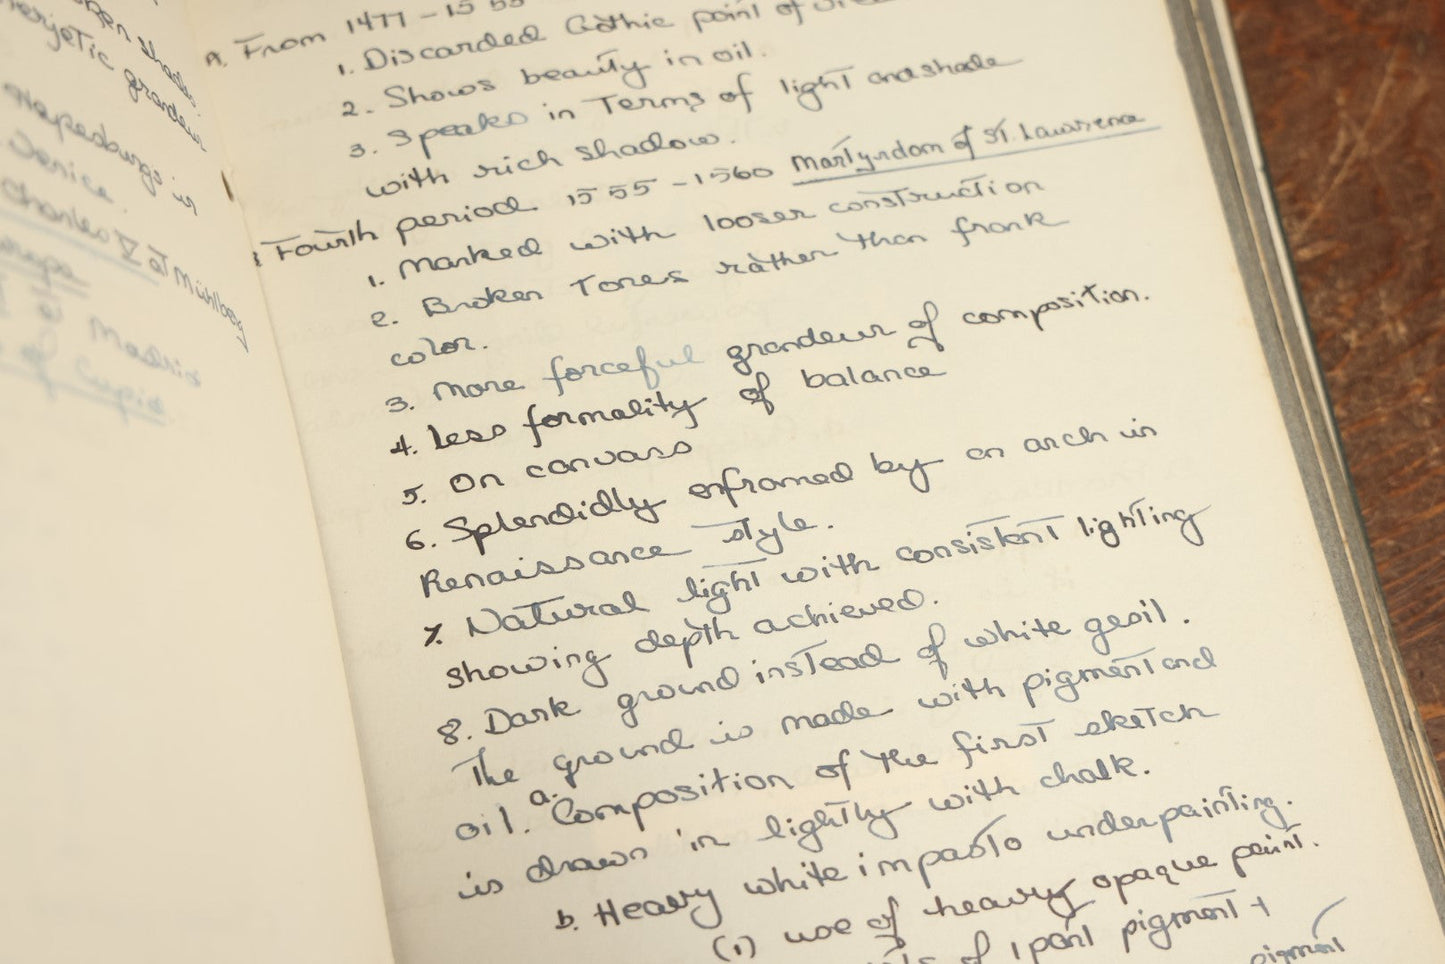 Hapesburgs in
Venice.
Charles V at Mühlberg
Europa
Madrid
of Cupid
A. From 1477-1555
1. Discarded Gothic point of
2. Shows beauty in oil.
3. Speaks in Terms of light and shade
with rich shadow.
Fourth period 1555-1560 Martyrdom of St. Lawrence
1. Marked with looser construction
2. Broken Tones rather than frank
color.
3. More forceful grandeur of composition.
4. Less formality of balance
5. On canvass
6. Splendidly enframed by an arch in
Renaissance style.
7. Natural light with consistent lighting
showing depth achieved.
8. Dark ground instead of white gesil.
The ground is made with pigment and
oil. a. Composition of the first sketch
is drawn in lightly with chalk.
b. Heavy white impasto underpainting.
(1) use of heavy opaque paint.
of 1 part pigment +
pigment